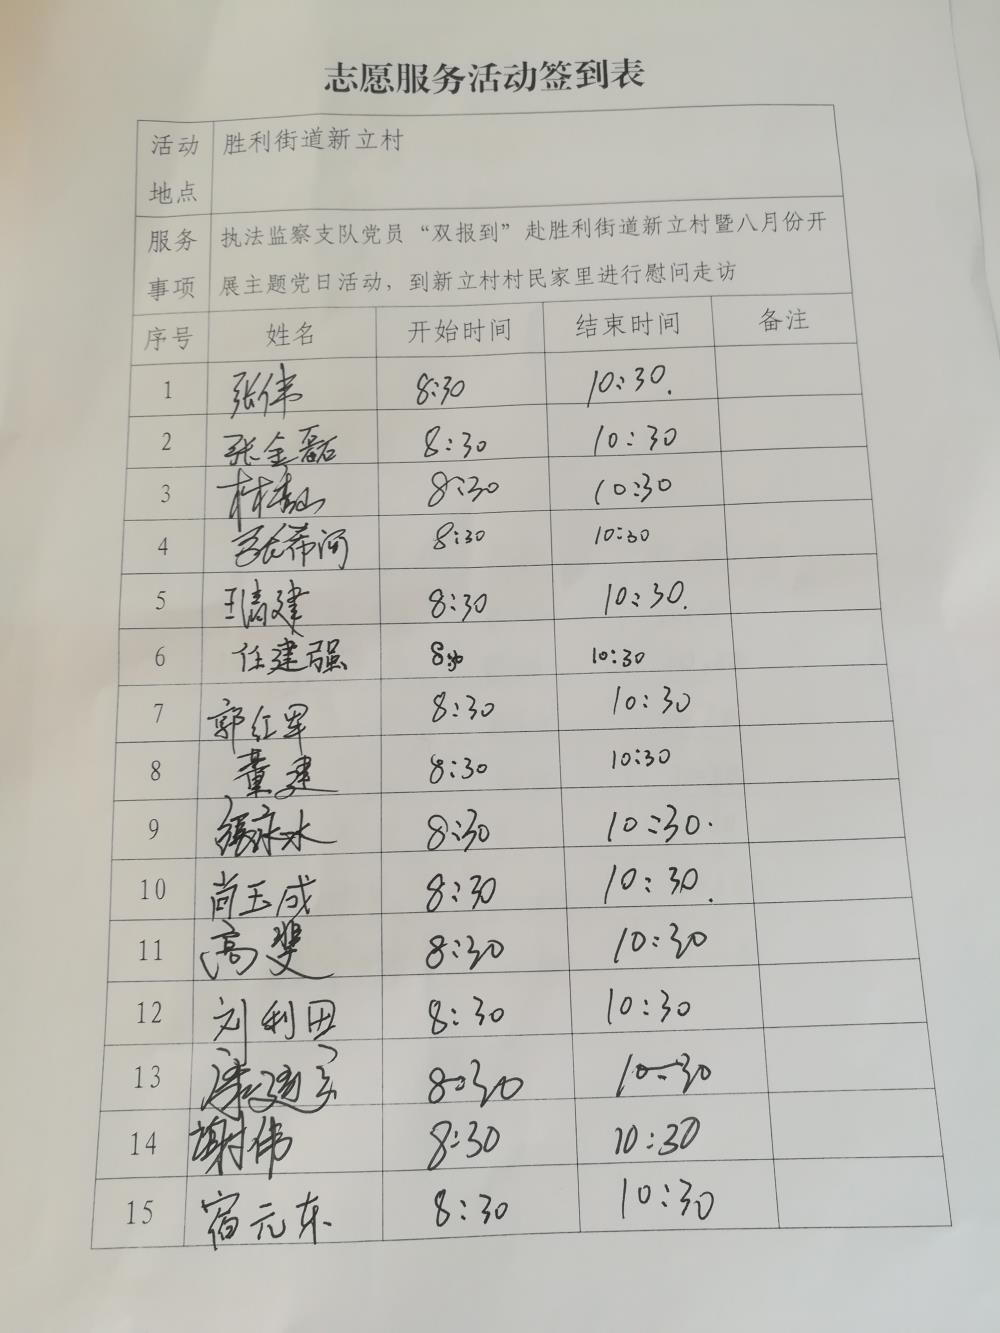 志愿服务活动签到表
活动地点 胜利街道新立村
服务事项 执法监察支队党员“双报到”赴胜利街道新立村暨八月份开
展主题党日活动，到新立村村民家里进行慰问走访
序号 姓名 开始时间 结束时间 备注
1 张伟 8:30 10:30.
2 张金磊 8:30 10:30
3 8:30 10:30
4 张希河 8:30 10:30
5 王清建 8:30 10:30.
6 任建强 8:30 10:30
7 郭红军 8:30 10:30
8 董建 8:30 10:30
9 张永水 8:30 10:30.
10 尚玉成 8:30 10:30.
11 高斐 8:30 10:30
12 刘利田 8:30 10:30
13 8:30 10:30
14 谢伟 8:30 10:30
15 宿元东 8:30 10:30